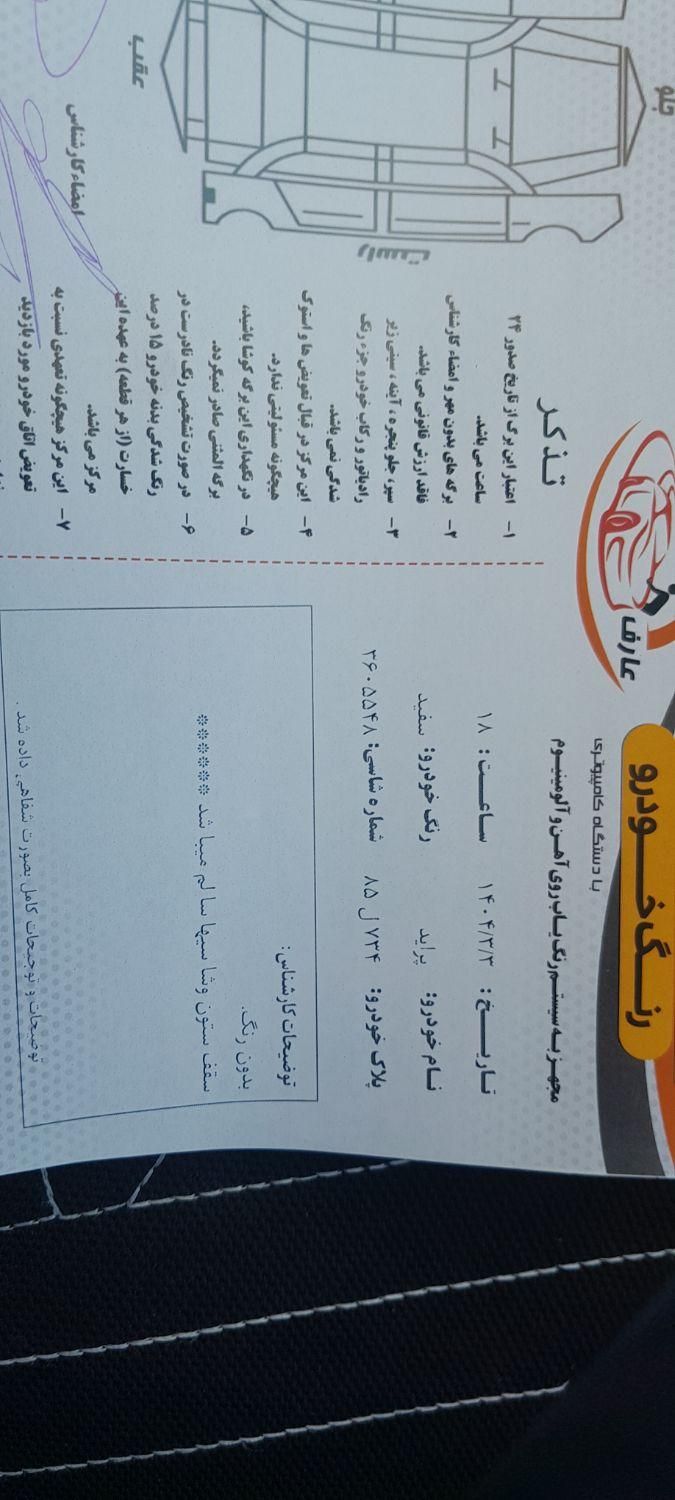 رنـگ خـودرو
عارف
با دستگاه کامپیوتری
مجهـز بـه سیستم رنگ یـاب روی آهـن و آلومینیـوم
تـاریـخ: ۱۴۰۴/۳/۳ ساعـت: ۱۸
نـام خودرو: پراید رنگ خودرو: سفید
پلاک خودرو: ۷۳۴ ل ۸۵ شماره شاسی: ۳۶۰۵۵۴۸
توضیحات کارشناس:
بدون رنگ.
سقف ستون وشا سیها سا لم میبا شد ******
توضیحات و توجیحات کامل بصورت شفاهی داده شد.
تـذکـر
۱- اعتبار این برگ از تاریخ صدور ۲۴
ساعت می باشد.
۲- برگه های بدون مهر و امضاء کارشناس
فاقد ارزش قانونی می باشد.
۳- سپر، جلو پنجره، آینه، سینی زیر
رادیاتور و رکاب خودرو جزء رنگ
شدگی نمی باشد.
۴- این مرکز در قبال تعویض ها و استوک
هیچگونه مسئولیتی ندارد.
۵- در نگهداری این برگه کوشا باشید،
برگه المثنی صادر نمیگردد.
۶- در صورت تشخیص رنگ نادرست در
رنگ شدگی بدنه خودرو ۱۵ درصد
خسارت (از هر قطعه) به عهده این
مرکز می باشد.
۷- این مرکز هیچگونه تعهدی نسبت به
تعویض اتاق خودرو مورد بازدید
جلو
راست
عقب
امضاء کارشناس